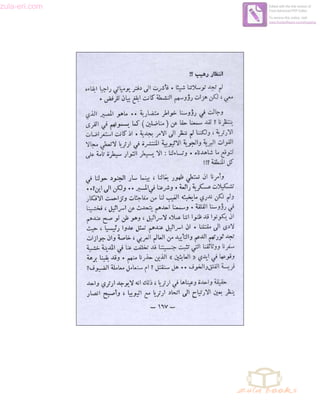 zula-eri.com
Edited with the trial version of
Foxit Advanced PDF Editor
To remove this notice, visit:
www.foxitsoftware.com/shopping
انتظار رهيب !!
لم تجد توسلاتنا شيئا . فأشرت الى دفتر يومياتي راجيا ابقاءه
معي ، لكن هزات رؤوسهم النشطة كانت ابلغ بيان للرفض .
وجالت في رؤوسنا خواطر متضاربة .. ماهو المصير الذي
ينتظرنا ؟ لقد سمعنا حقا عن ( مناضلين ) كما يسمونهم في القرى
الارترية ، ولكننا لم ننظر الى الامر بجدية . اذ كانت استعراضات
القوات البرية والجوية الاثيوبية المنتشرة في ارتريا لاتعطي مجالا
لتوقع ما شاهدناه . وتساءلنا : الا يسيطر الثوار سيطرة تامة على
كل المنطقة !؟!
وأمرنا ان نمتطي ظهور بغالنا ، بينما سار الجنود حولنا في
تشكيلات عسكرية رائعة . وشرعنا في المسير .. ولكن الى اين ؟..
ولم نكن ندري ما يخبئه الغيب لنا من مفاجئات وتزاحمت الافكار
في رؤوسنا القلقة . وسمعنا احدهم يتحدث عن اسرائيل ، فخشينا
ان يكونوا قد ظنوا اننا عملاء لاسرائيل ، وهو ظن لو صح عندهم
لادى الى مقتلنا . ان اسرائيل عندهم تمثل عدوا رئيسيا ، حيث
تجد ثورتهم الدعم والتأييد من العالم العربي ، خاصة وان جوازات
سفرنا ووثائقنا التي تثبت جنسيتنا قد تخلفت عنا في المدينة خشية
وقوعها في ايدي « العابثين » الذين حذرنا منهم . وقد بقينا برهة
فريسة القلق والخوف .. هل سنقتل ؟ ام سنعامل معاملة الضيوف ؟
حقيقة واحدة وعيناها في ارتريا ، ذلك انه لايوجد ارتري واحد
ينظر بعين الارتياح الى اتحاد ارتريا مع اثيوبيا ، وأصبح انصار
— ١٦٧ —